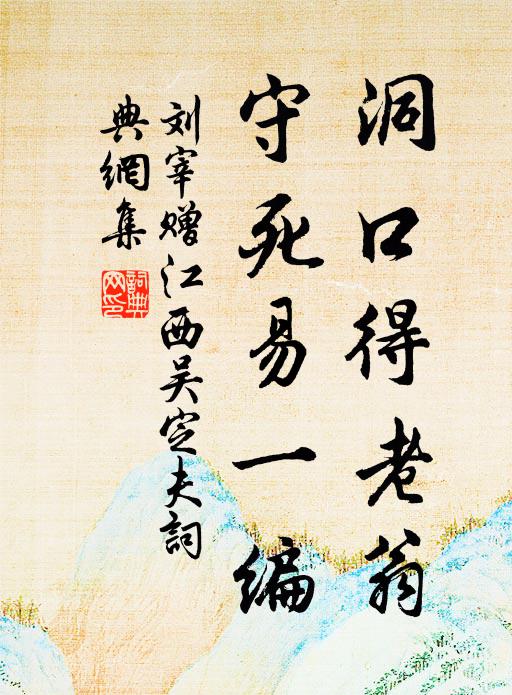 洞口得老翁
守死易一编
刘宰赠江西吴定夫詞
典網集
詞典
网印